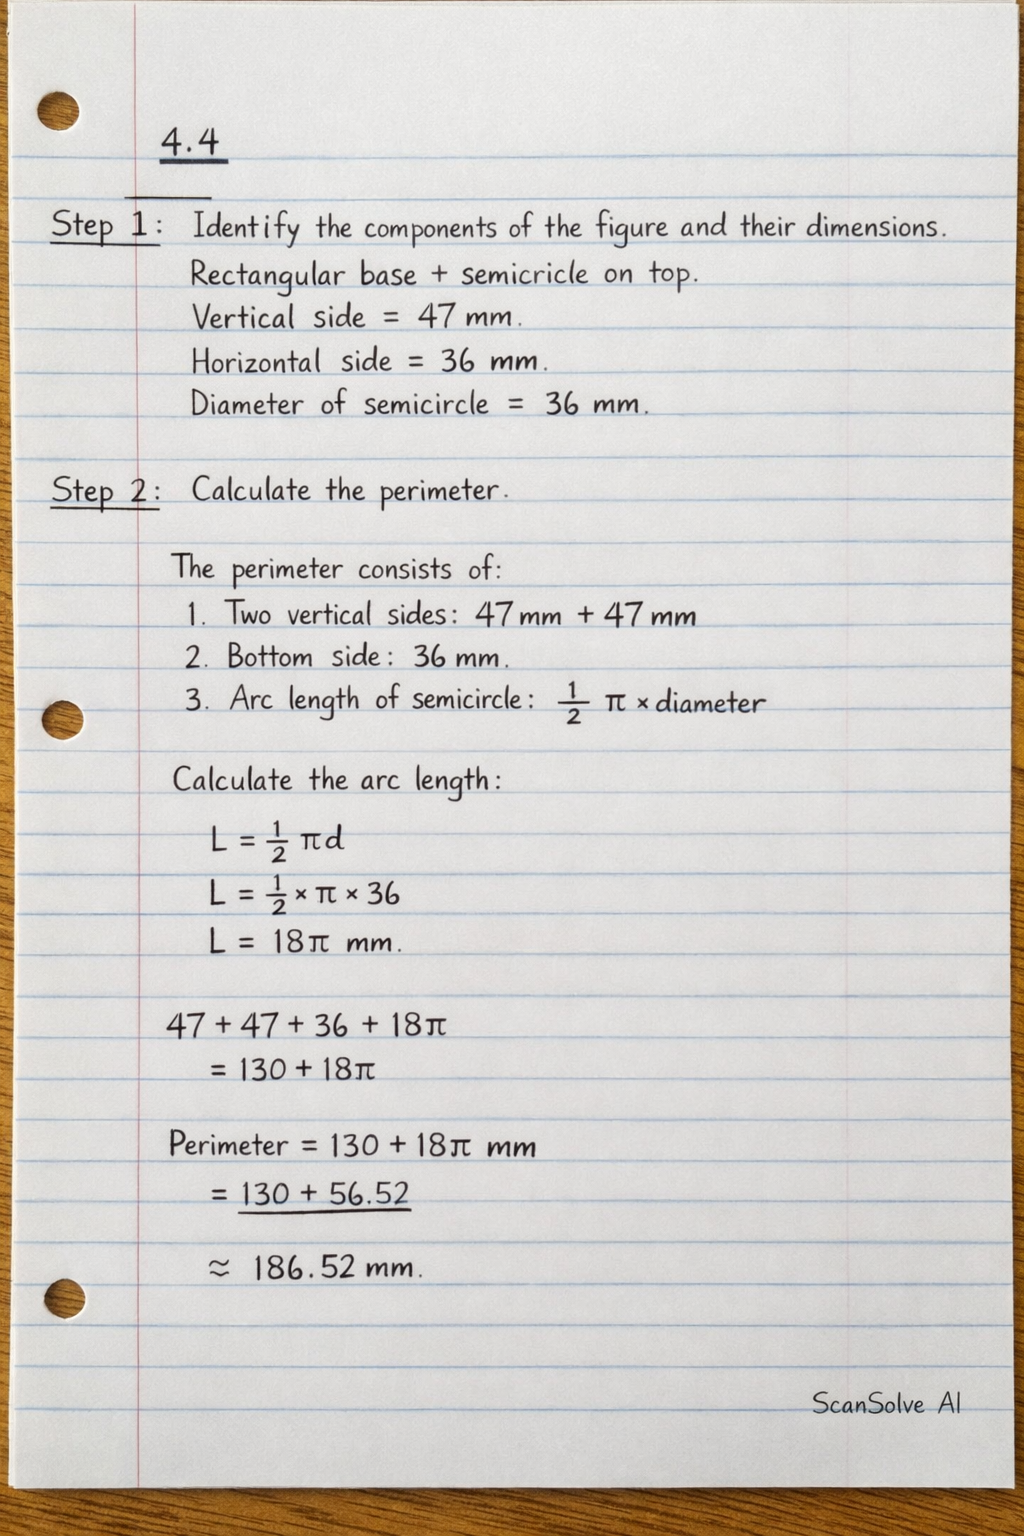 4.4
Step 1: Identify the components of the figure and their dimensions.
Rectangular base + semicricle on top.
Vertical side = 47 mm.
Horizontal side = 36 mm.
Diameter of semicircle = 36 mm.
Step 2: Calculate the perimeter.
The perimeter consists of:
1. Two vertical sides: 47 mm + 47 mm
2. Bottom side: 36 mm.
3. Arc length of semicircle: 1/2 π × diameter
Calculate the arc length:
L = 1/2 πd
L = 1/2 × π × 36
L = 18π mm.
47 + 47 + 36 + 18π
= 130 + 18π
Perimeter = 130 + 18π mm
= 130 + 56.52
≈ 186.52 mm.
ScanSolve AI